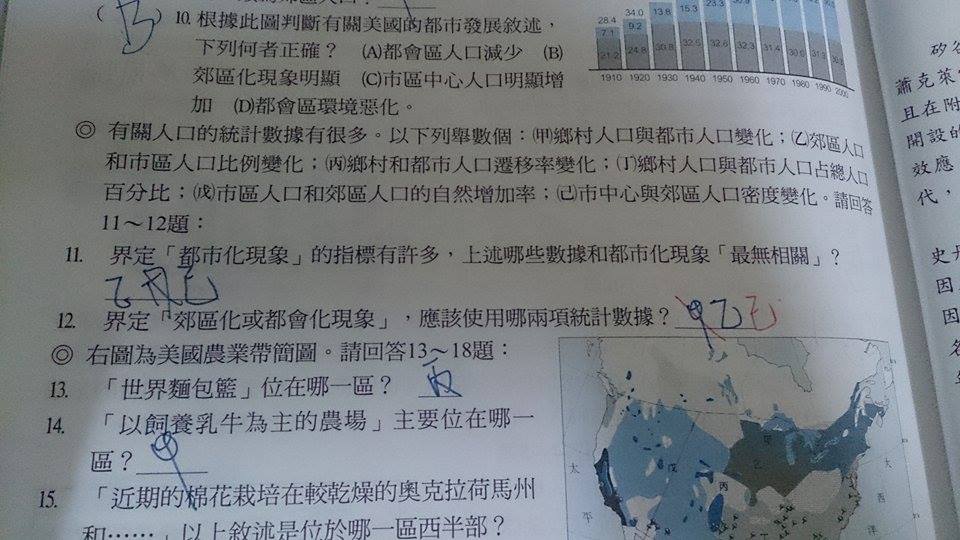 ( B ) 10. 根據此圖判斷有關美國的都市發展敘述，
下列何者正確？ (A)都會區人口減少 (B)
郊區化現象明顯 (C)市區中心人口明顯增
加 (D)都會區環境惡化。
28.4 34.0
7.1 9.2 13.8 15.3 23.3
21.2 24.8 30.8 32.5 32.6 32.3 31.4
1910 1920 1930 1940 1950 1960 1970 1980 1990 2000
◎ 有關人口的統計數據有很多。以下列舉數個：(甲)鄉村人口與都市人口變化；(乙)郊區人口
和市區人口比例變化；(丙)鄉村和都市人口遷移率變化；(丁)鄉村人口與都市人口占總人口
百分比；(戊)市區人口和郊區人口的自然增加率；(己)市中心與郊區人口密度變化。請回答
11～12題：
11. 界定「都市化現象」的指標有許多，上述哪些數據和都市化現象「最無相關」？
乙 己
12. 界定「郊區化或都會化現象」，應該使用哪兩項統計數據？ 乙己
◎ 右圖為美國農業帶簡圖。請回答13～18題：
13. 「世界麵包籃」位在哪一區？ 丙
14. 「以飼養乳牛為主的農場」主要位在哪一
區？ 甲
15. 「近期的棉花栽培在較乾燥的奧克拉荷馬州
和……」以上敘述是位於哪一區西半部？
甲
戊 乙
丙
太
平
大
西
洋
矽谷
蕭克萊
且在附
開設的
效應，
代，
史丹
因
因